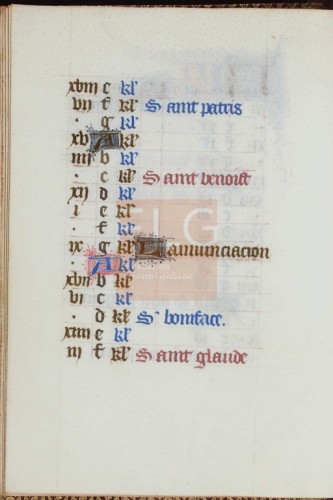 xviii e kl'
vii f kl' Saint patris
. g kl'
xv A kl'
iiii b kl'
. c kl' Saint benoist
xii d kl'
i e kl'
. f kl'
ix g kl' Lanunciacion
. A kl'
xvii b kl'
vi c kl'
. d kl' S' boniface.
xiiii e kl'
iii f kl' Saint glaude